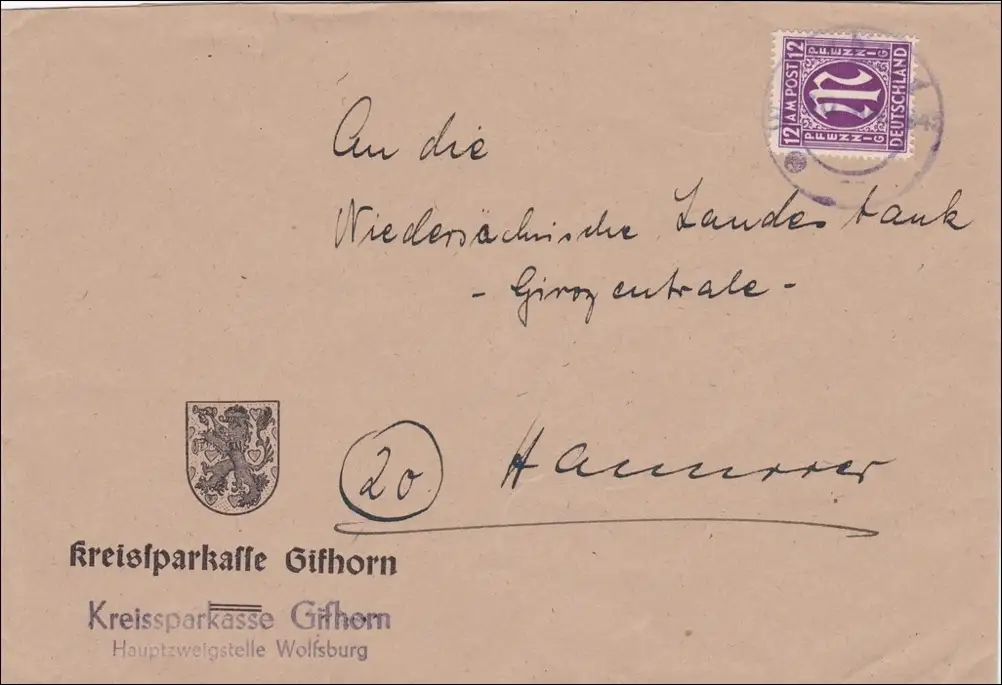 12 AM POST 12
PFENNIG
M
PFENNIG
DEUTSCHLAND
An die
Niedersächsische Landesbank
- Girozentrale -
20 Hannover
Kreissparkasse Gifhorn
Kreissparkasse Gifhorn
Hauptzweigstelle Wolfsburg